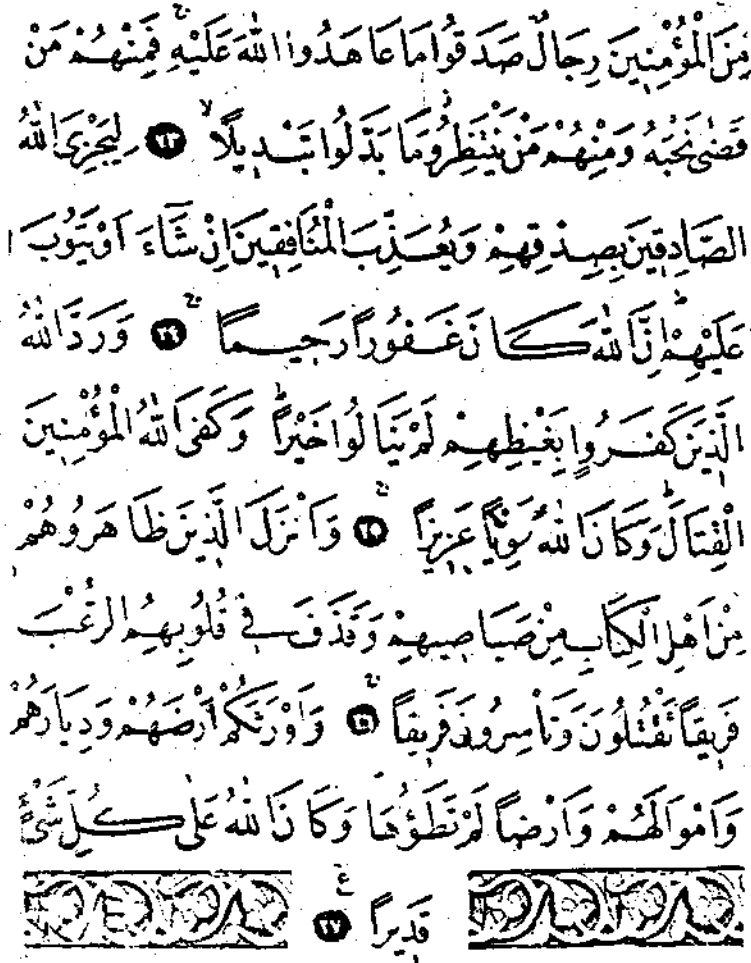 مِنَ الْمُؤْمِنِينَ رِجَالٌ صَدَقُوا مَا عَاهَدُوا اللّٰهَ عَلَيْهِۚ فَمِنْهُمْ مَنْ
قَضٰى نَحْبَهُ وَمِنْهُمْ مَنْ يَنْتَظِرُۘ وَمَا بَدَّلُوا تَبْدِيلًاۙ ﴿٢٣﴾ لِيَجْزِيَ اللّٰهُ
الصَّادِقِينَ بِصِدْقِهِمْ وَيُعَذِّبَ الْمُنَافِقِينَ اِنْ شَٓاءَ اَوْ يَتُوبَ
عَلَيْهِمْۜ اِنَّ اللّٰهَ كَانَ غَفُورًا رَحِيمًاۚ ﴿٢٤﴾ وَرَدَّ اللّٰهُ
الَّذِينَ كَفَرُوا بِغَيْظِهِمْ لَمْ يَنَالُوا خَيْرًاۜ وَكَفَى اللّٰهُ الْمُؤْمِنِينَ
الْقِتَالَۜ وَكَانَ اللّٰهُ قَوِيًّا عَزِيزًاۚ ﴿٢٥﴾ وَاَنْزَلَ الَّذِينَ ظَاهَرُوهُمْ
مِنْ اَهْلِ الْكِتَابِ مِنْ صَيَاصِيهِمْ وَقَذَفَ فِي قُلُوبِهِمُ الرُّعْبَ
فَرِيقًا تَقْتُلُونَ وَتَأْسِرُونَ فَرِيقًاۚ ﴿٢٦﴾ وَاَوْرَثَكُمْ اَرْضَهُمْ وَدِيَارَهُمْ
وَاَمْوَالَهُمْ وَاَرْضًا لَمْ تَطَؤُ۫هَا وَكَانَ اللّٰهُ عَلٰى كُلِّ شَيْءٍ
قَدِيرًا ع ﴿٢٧﴾